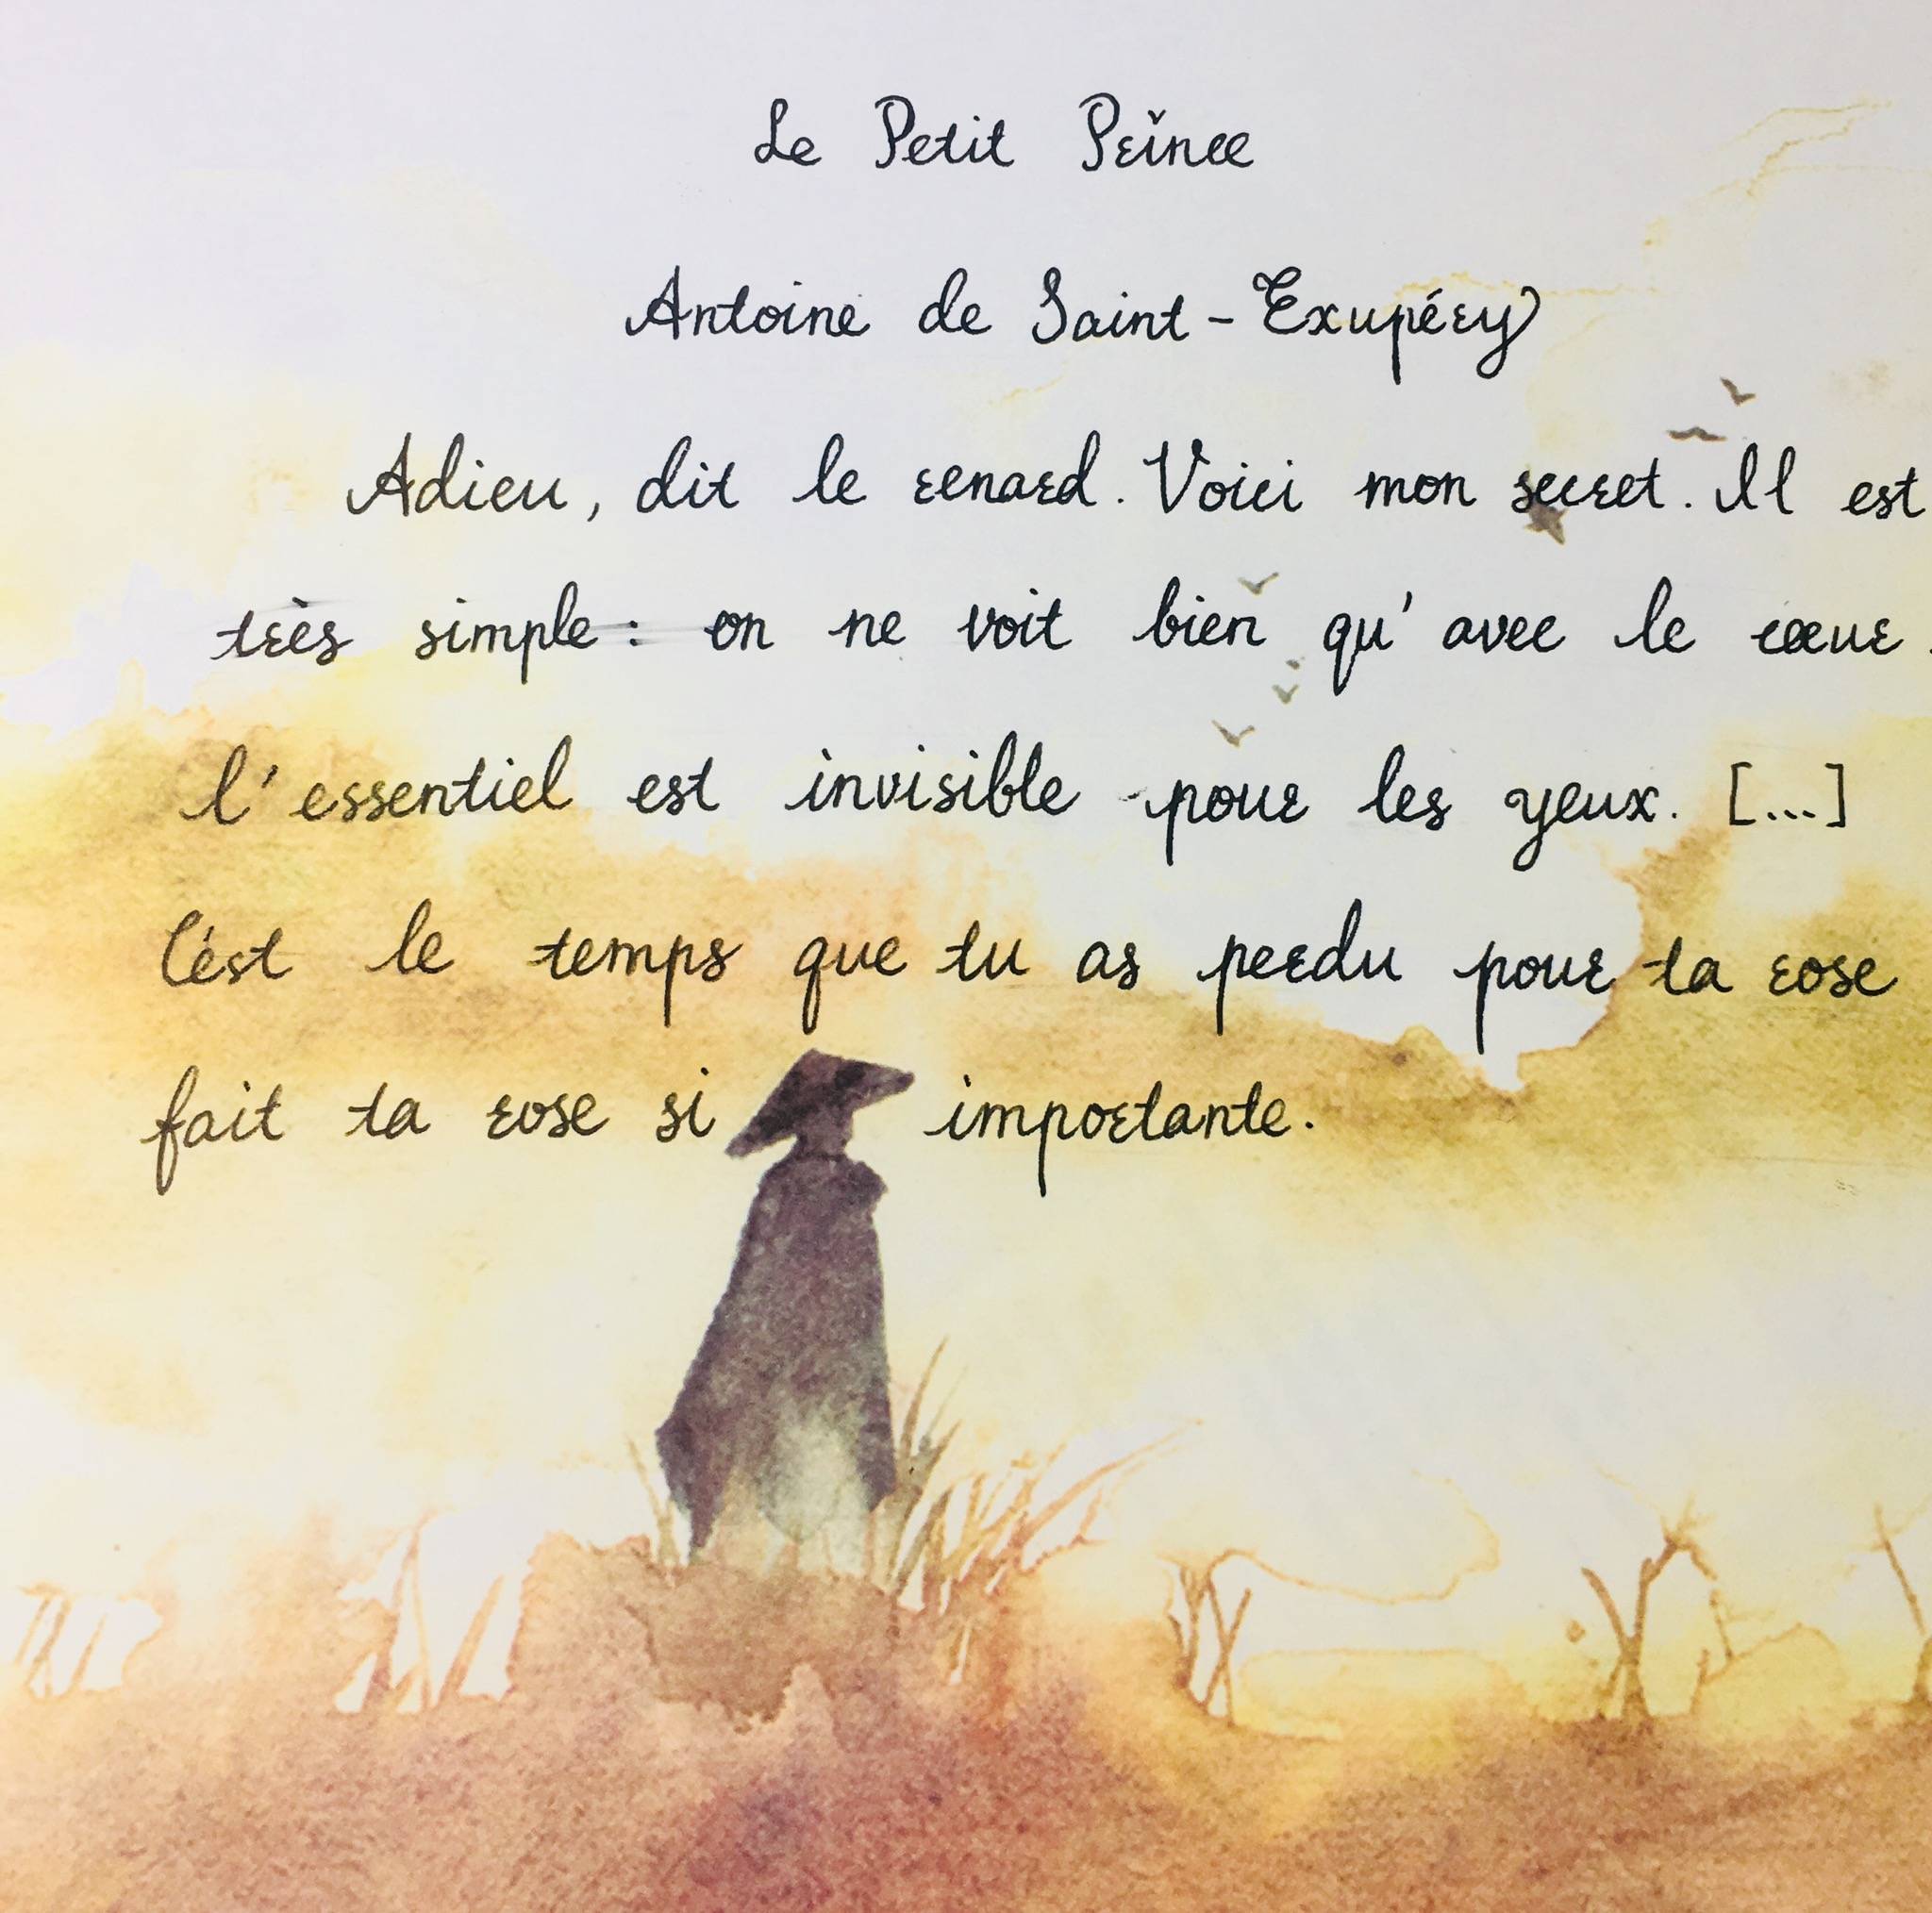 Le Petit Prince
Antoine de Saint-Exupéry
Adieu, dit le renard. Voici mon secret. Il est
très simple: on ne voit bien qu'avec le cœur.
l'essentiel est invisible pour les yeux. [...]
C'ést le temps que tu as perdu pour ta rose
fait ta rose si importante.